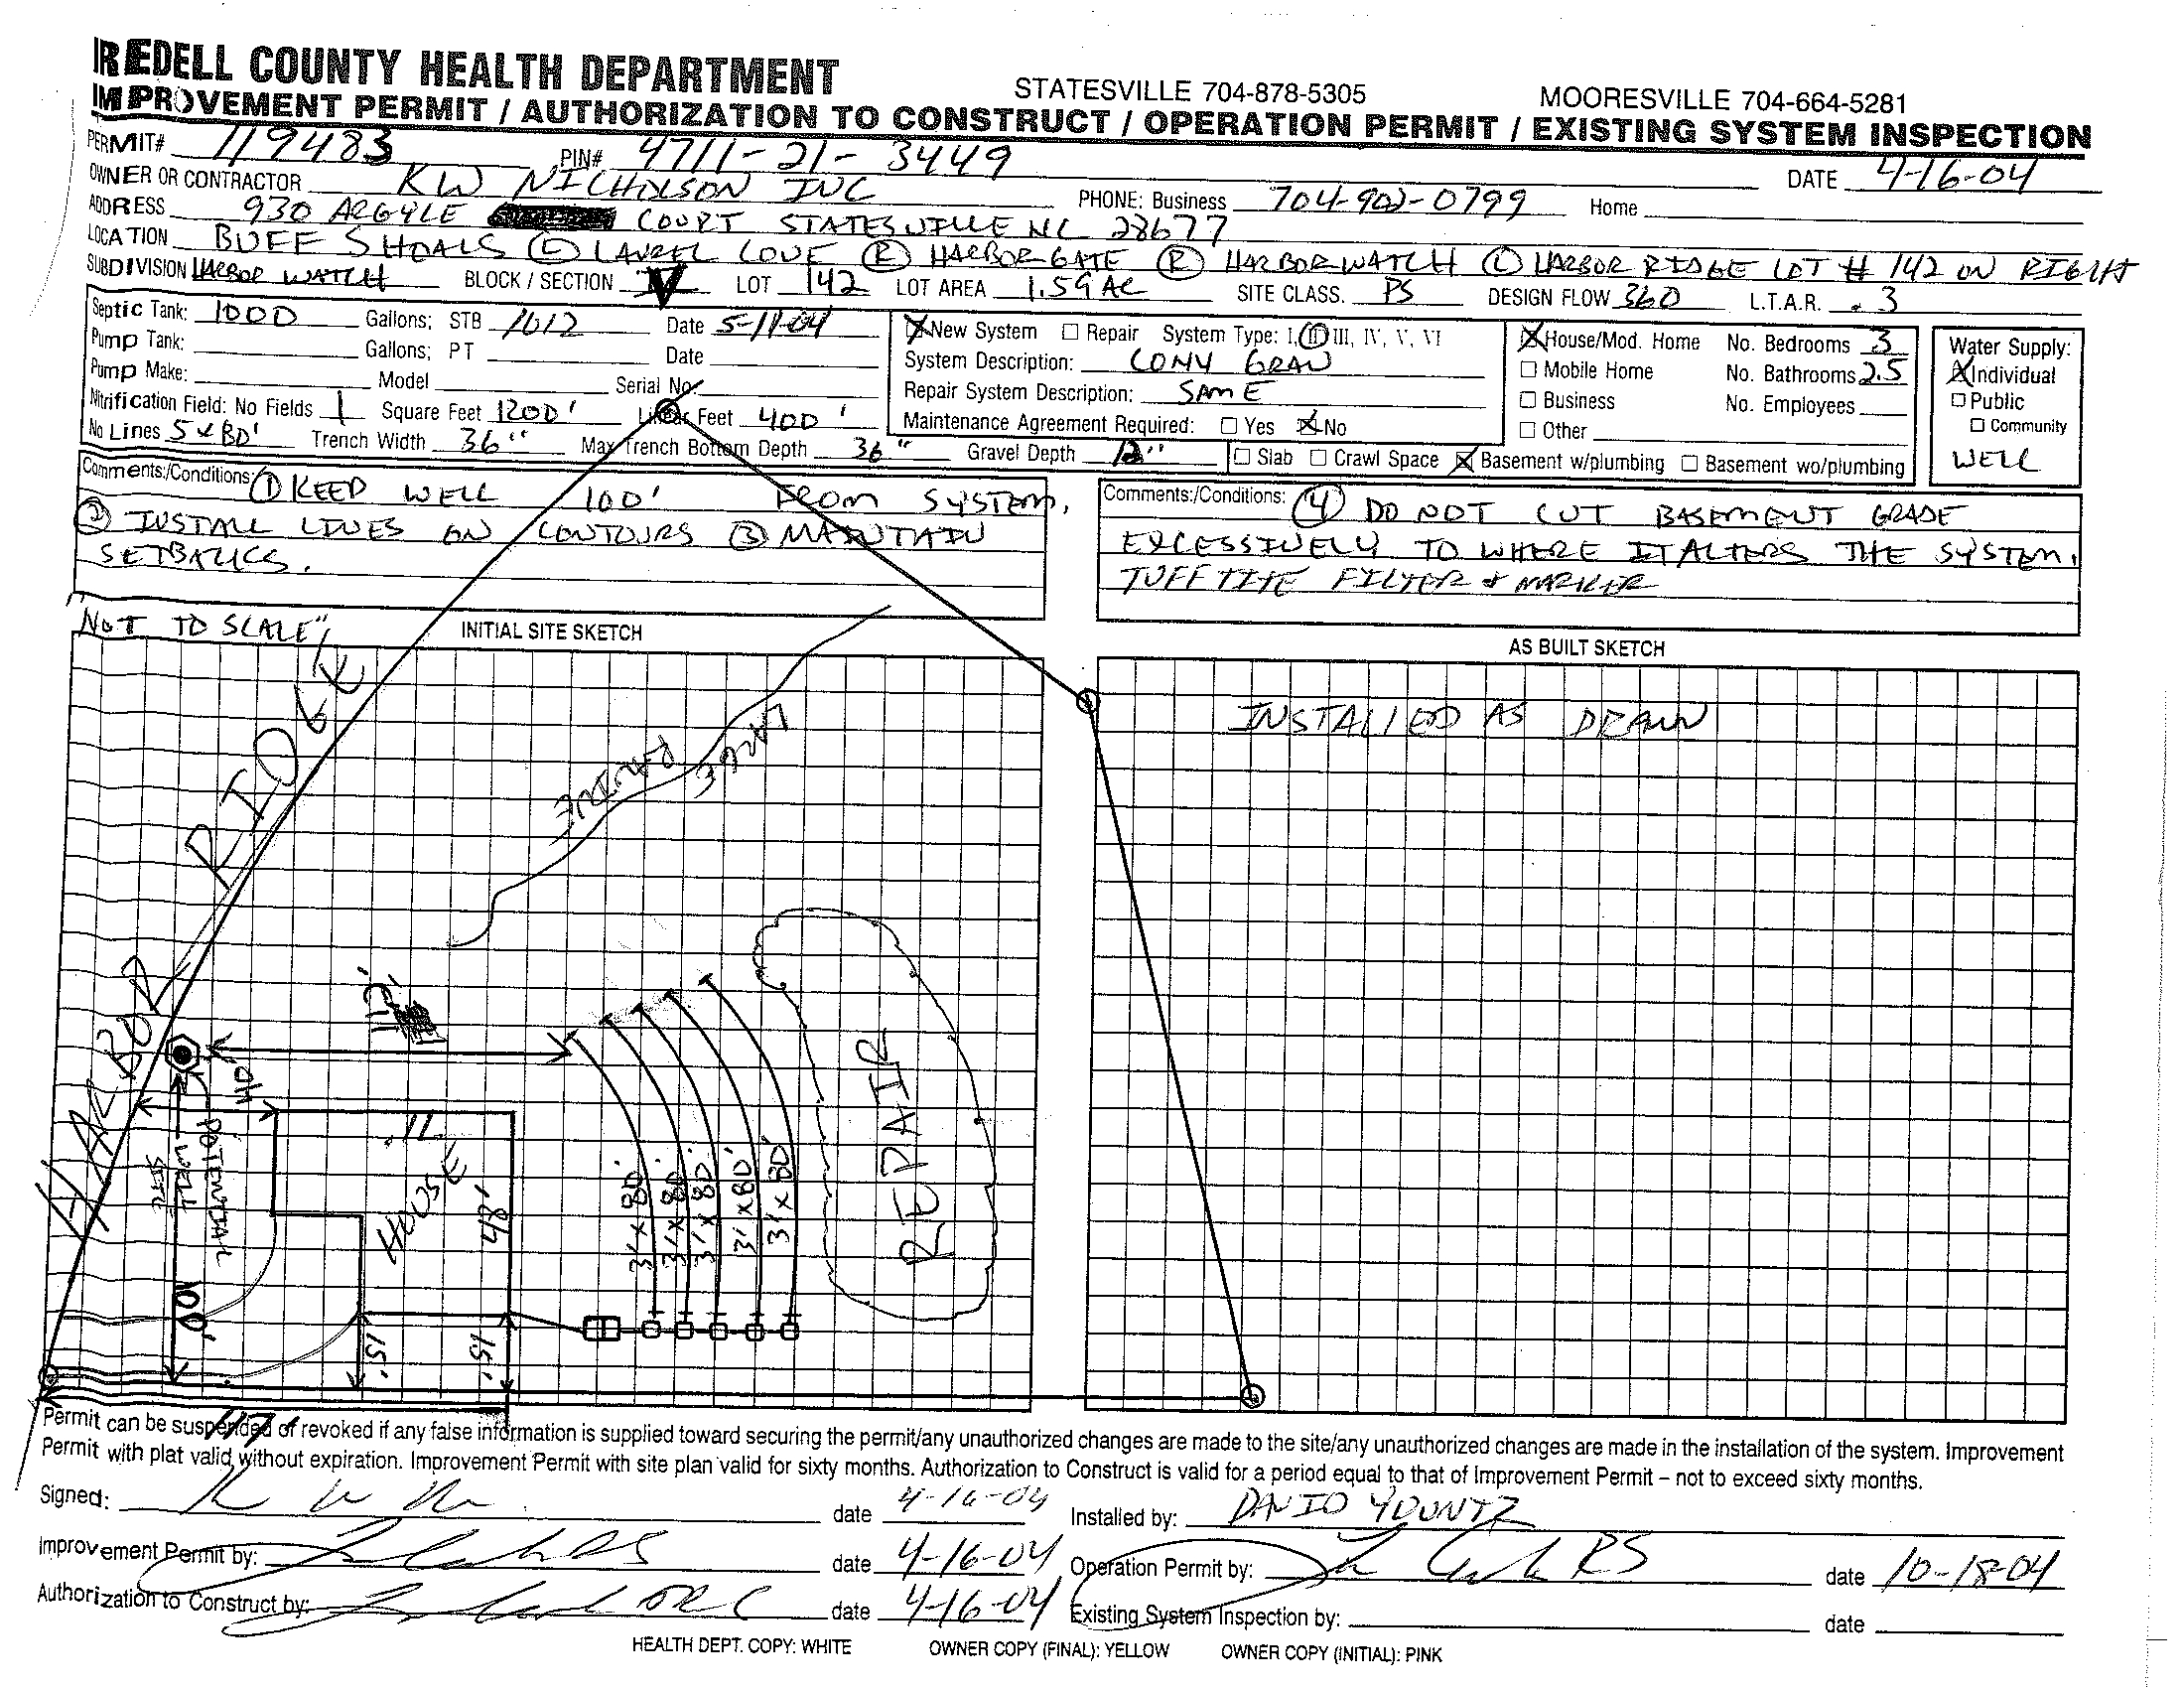 IREDELL COUNTY HEALTH DEPARTMENT STATESVILLE 704-878-5305 MOORESVILLE 704-664-5281
IMPROVEMENT PERMIT / AUTHORIZATION TO CONSTRUCT / OPERATION PERMIT / EXISTING SYSTEM INSPECTION
PERMIT# 119483 PIN# 4711-21-3449
OWNER OR CONTRACTOR KW NICHOLSON INC DATE 4-16-04
ADDRESS 930 ARGYLE COURT STATESVILLE NC 28677 PHONE: Business 704-902-0799 Home
LOCATION BUFF SHOALS (L) LAUREL COVE (R) HARBOR GATE (R) HARBOR WATCH (L) HARBOR RIDGE LOT # 142 ON RIGHT
SUBDIVISION HARBOR WATCH BLOCK / SECTION LOT 142 LOT AREA 1.59 AC SITE CLASS. PS DESIGN FLOW 360 L.T.A.R. .3
Septic Tank: 1000 Gallons; STB 1012 Date 5-11-04
Pump Tank: Gallons; PT Date
Pump Make: Model Serial No.
Nitrification Field: No Fields 1 Square Feet 1200' Linear Feet 400'
No Lines 5 x 80' Trench Width 36" Max Trench Bottom Depth 36" Gravel Depth 12"
New System Repair System Type: I, II, III, IV, V, VI
System Description: CONV GRAV
Repair System Description: SAME
Maintenance Agreement Required: Yes No
Slab Crawl Space Basement w/plumbing Basement wo/plumbing
House/Mod. Home No. Bedrooms 3
Mobile Home No. Bathrooms 2.5
Business No. Employees
Other
Water Supply:
Individual
Public
Community
WELL
Comments:/Conditions: (1) KEEP WELL 100' FROM SYSTEM.
(2) INSTALL LINES ON CONTOURS (3) MAINTAIN
SETBACKS.
Comments:/Conditions: (4) DO NOT CUT BASEMENT GRADE
EXCESSIVELY TO WHERE IT ALTERS THE SYSTEM.
TUFFTITE FILTER & MARKER
"NOT TO SCALE" INITIAL SITE SKETCH
AS BUILT SKETCH
INSTALLED AS DRAWN
HARBOR RIDGE
LARGE RAVINE
REPAIR
POTENTIAL
WELL
SITE
100'
HOUSE
48'
15'
15'
3'x80'
3'x80'
3'x80'
3'x80'
3'x80'
Permit can be suspended or revoked if any false information is supplied toward securing the permit/any unauthorized changes are made to the site/any unauthorized changes are made in the installation of the system. Improvement
Permit with plat valid without expiration. Improvement Permit with site plan valid for sixty months. Authorization to Construct is valid for a period equal to that of Improvement Permit – not to exceed sixty months.
Signed: date 4-16-04 Installed by: DAVID YOUNTZ
Improvement Permit by: date 4-16-04 Operation Permit by: RS date 10-18-04
Authorization to Construct by: date 4-16-04 Existing System Inspection by: date
HEALTH DEPT. COPY: WHITE OWNER COPY (FINAL): YELLOW OWNER COPY (INITIAL): PINK